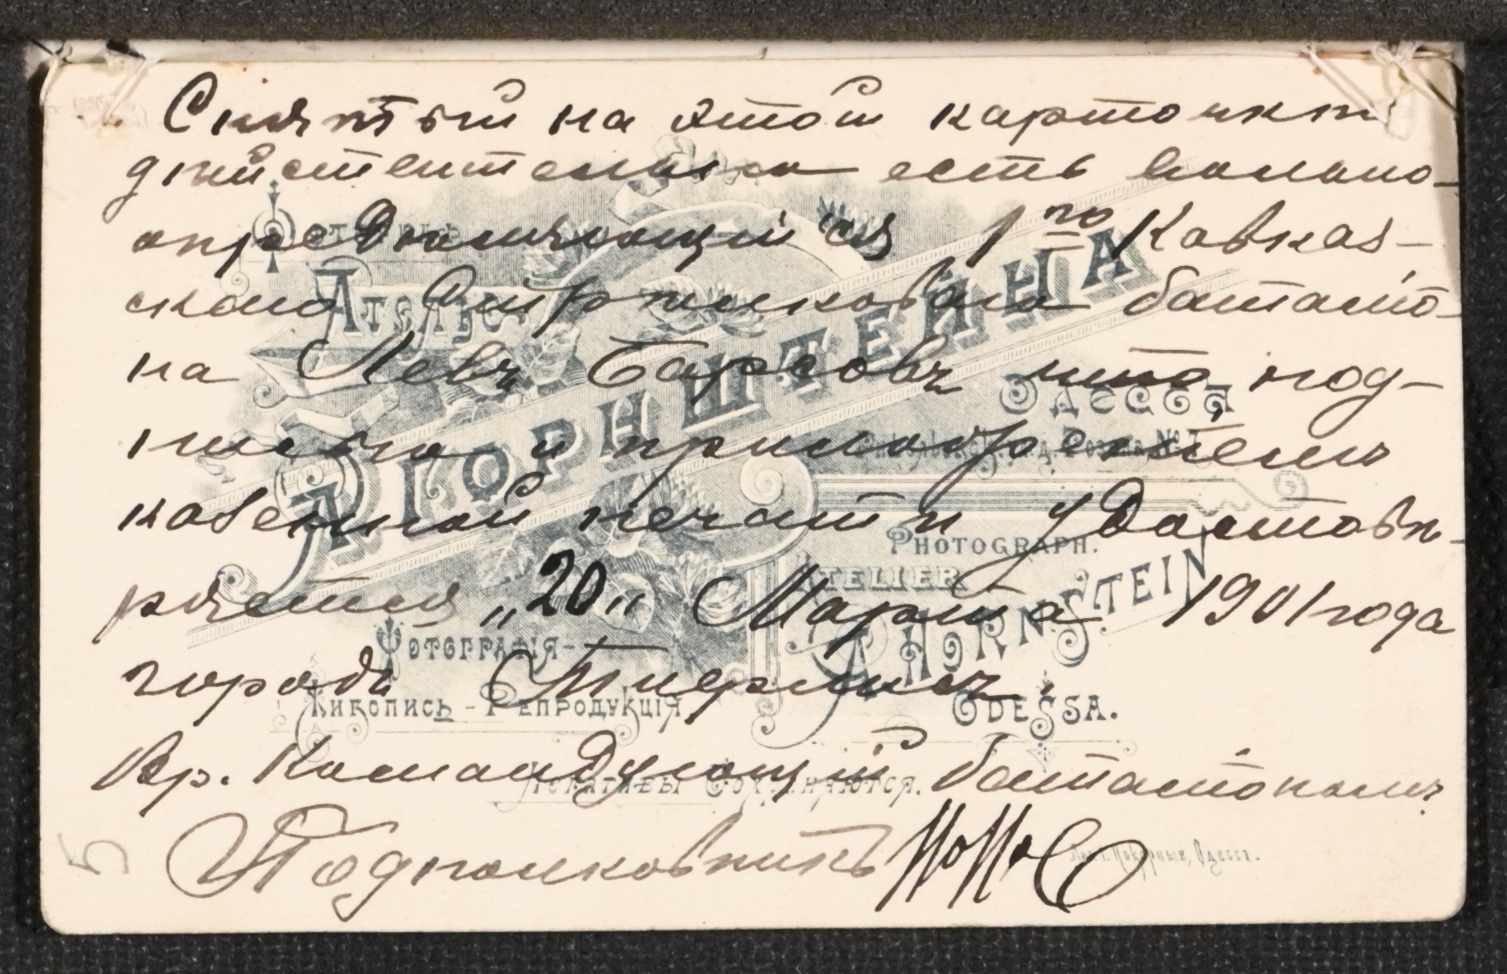 Снятый на этой карточкѣ
дѣйствительно есть вольно-
опредѣляющійся 1го Кавказ-
скаго Стрѣлковаго баталіо-
на Левъ Барсовъ что под-
писью и приложеніемъ
казенной печати удостовѣ-
ряется „20„ Марта 1901 года
городъ
Вр. Командующій баталіономъ
Подполковникъ
Фотограф.
Ателье
А ГОРНШТЕЙНА
ОДЕССА
PHOTOGRAPH.
ATELIER
A HORNSTEIN
ODESSA.
ФОТОГРАФІЯ-
ЖИВОПИСЬ-РЕПРОДУКЦІЯ
НЕГАТИВЫ СОХРАНЯЮТСЯ.
5